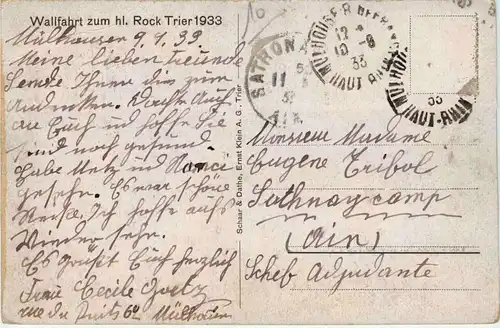 Wallfahrt zum hl. Rock Trier 1933
Mülhausen 9.9.33
Meine lieben Freunde
Sende Ihnen dies zum
Andenken. Dachte auch
an Euch und hoffe Sie
sind noch gesund.
Habe Metz und Nancy
gesehn. Es war schöne
Reise, Ich hoffe aufs
Wiedersehn.
Es grüßt Euch herzlich
Frau Cecile
rue du Puits 60 Mülhausen
Schaar & Dathe, Ernst Klein A. G., Trier
SATHONA
11
MULHOUSE
10-9
33
HAUT-RHIN
MULHOU
33
HAUT-RHIN
Monsieur Madame
Eugene Tribol
Sathnay camp
(Ain)
Schef Adjudante